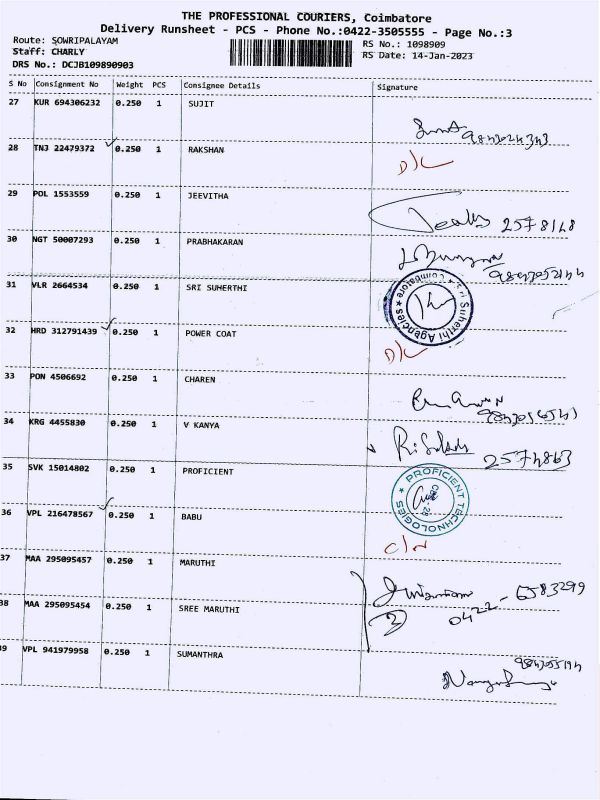 THE PROFESSIONAL COURIERS, Coimbatore
Delivery Runsheet - PCS - Phone No.:0422-3505555 - Page No.:3
Route: SOWRIPALAYAM
Staff: CHARLY
DRS No.: DCJB109890903
RS No.: 1098909
RS Date: 14-Jan-2023
S No Consignment No Weight PCS Consignee Details Signature
27 KUR 694306232 0.250 1 SUJIT
28 TNJ 22479372 0.250 1 RAKSHAN D/L
29 POL 1553559 0.250 1 JEEVITHA 2578168
30 NGT 50007293 0.250 1 PRABHAKARAN
31 VLR 2664534 0.250 1 SRI SUHERTHI Sri Suherthi Agencies ★ Coimbatore ★
32 HRD 312791439 0.250 1 POWER COAT D/L
33 PON 4506692 0.250 1 CHAREN
34 KRG 4455830 0.250 1 V KANYA 2574863
35 SVK 15014802 0.250 1 PROFICIENT ★ PROFICIENT TECHNOLOGIES ★
36 VPL 216478567 0.250 1 BABU
37 MAA 295095457 0.250 1 MARUTHI
38 MAA 295095454 0.250 1 SREE MARUTHI 0422 - 6583299
39 VPL 941979958 0.250 1 SUMANTHRA